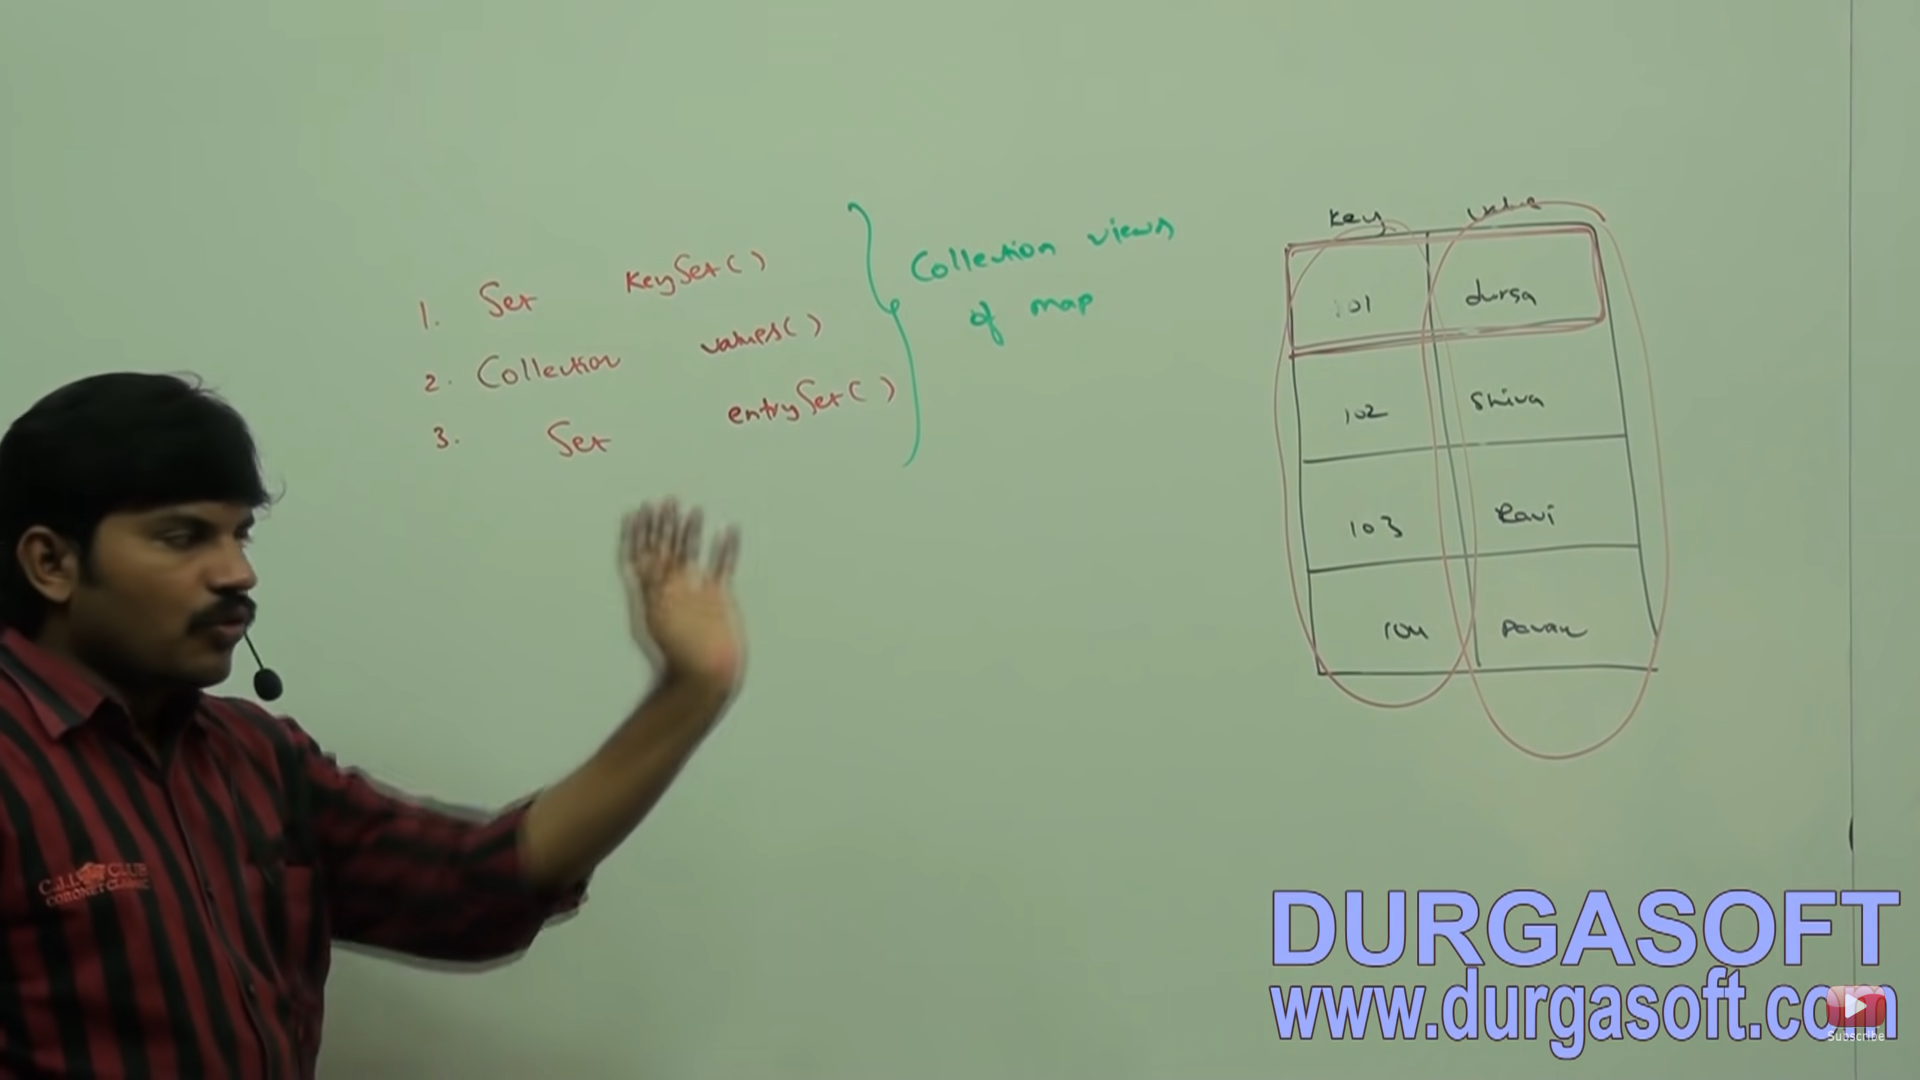 1. Set keySet()
2. Collection values()
3. Set entrySet()
Collection views
of map
key value
101 durga
102 Shiva
103 Ravi
104 Pavan
C.J.I. CLUB
CORONET CLASSIC
DURGASOFT
www.durgasoft.com
Subscribe